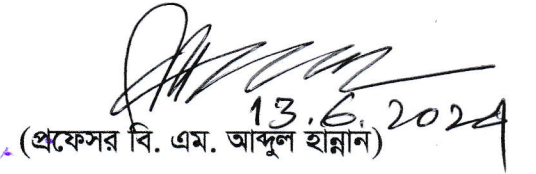 13.6.2024
(প্রফেসর বি. এম. আব্দুল হান্নান)